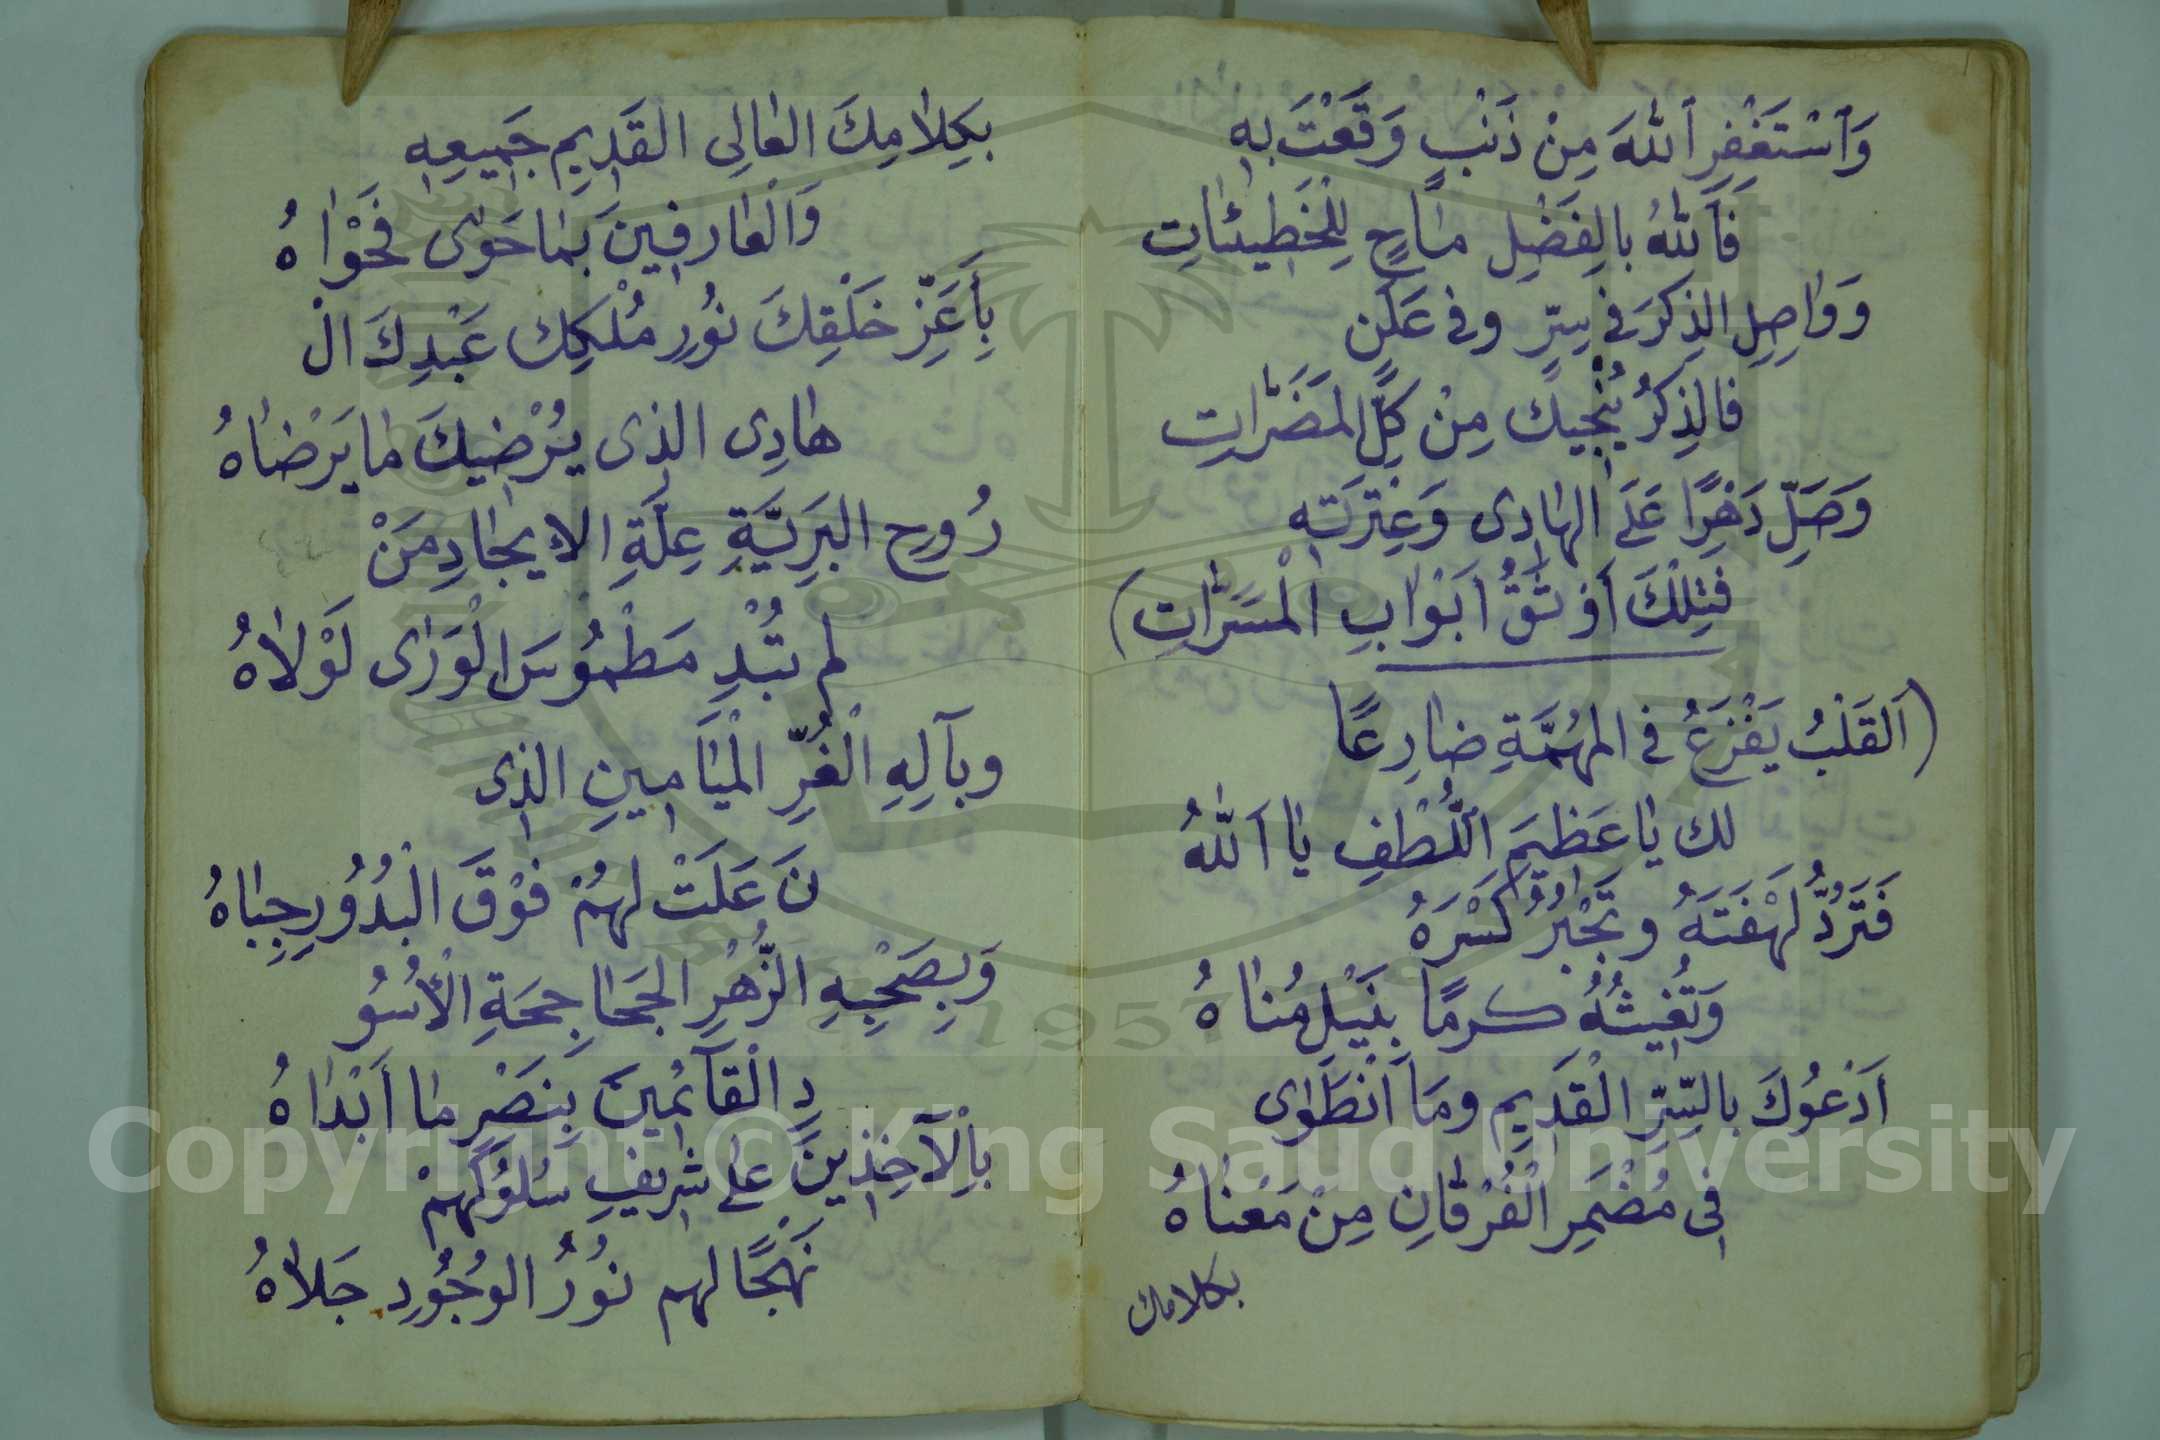 وَٱسْتَغْفِرِ ٱللهَ مِنْ ذَنْبٍ وَقَعْتَ بِهِ
فَٱللهُ بالِفَضْلِ مَاحٍ لِلْخَطِيئَاتِ
وَوَاصِلِ الذِكرَ فى سِرٍّ وفى عَلَنٍ
فالذِكرُ يُنْجِيكَ مِنْ كلِّ المَضَرَّاتِ
وَصَلِّ دَهْرًا عَلَى الهَادِى وَعِتْرَتِهِ
فَتِلْكَ أوْثَقُ ابَوْابِ الْمَسَرَّاتِ)
(اَلقَلْبُ يَفْزَعُ فى المُهُمَّةِ ضَارِعًا
لك يَا عَظِيمَ اللُّطْفِ يَا اَللهُ
فَتَرَدُّ لَهْفَتَهُ وتَجْبُرُ كَسْرَهُ
وَتُغِيثُهُ كرمًا بِنَيْلِ مُنَاهُ
اَدْعُوكَ بالسِّرِّ الْقَدِيمِ ومَا انْطَوَى
فِى مُضْمَرِ الْفُرْقَانِ مِنْ مَعْنَاهُ
بكلامك
بكِلَامِكَ العَالِى القَدِيمِ جَمِيعِهِ
وَالْعَارِفِينَ بمَا حَوَى فَحْوَاهُ
بِأَعَزِّ خَلْقِكَ نُورِ مُلْكِك عَبْدِكَ الْ
هَادِى الذى يُرْضِيكَ مَا يَرْضَاهُ
رُوحِ البَرِيَّةِ عِلَّةِ الايجَادِ مَنْ
لم تُبْدِ مَطْمُوسَ الْوَرَى لَوْلَاهُ
وبآلِهِ الْغُرِّ الْمَيَامِينِ الذِى
نَ عَلَتْ لَهُمْ فَوْقَ الْبُدُورِ جِبَاهُ
وَبِصَحْبِهِ الزُّهْرِ الجَحَاجِحَةِ الْأُسُو
دِ الْقَآئمِينَ بِنَصْرِ مَا اَبْدَاهُ
باِلْآخِذِينَ عَلى شَرِيفِ سُلُوكهِمْ
نَهْجًا لهم نُورُ الوُجُودِ جَلَاهُ
Copyright © King Saud University
1957